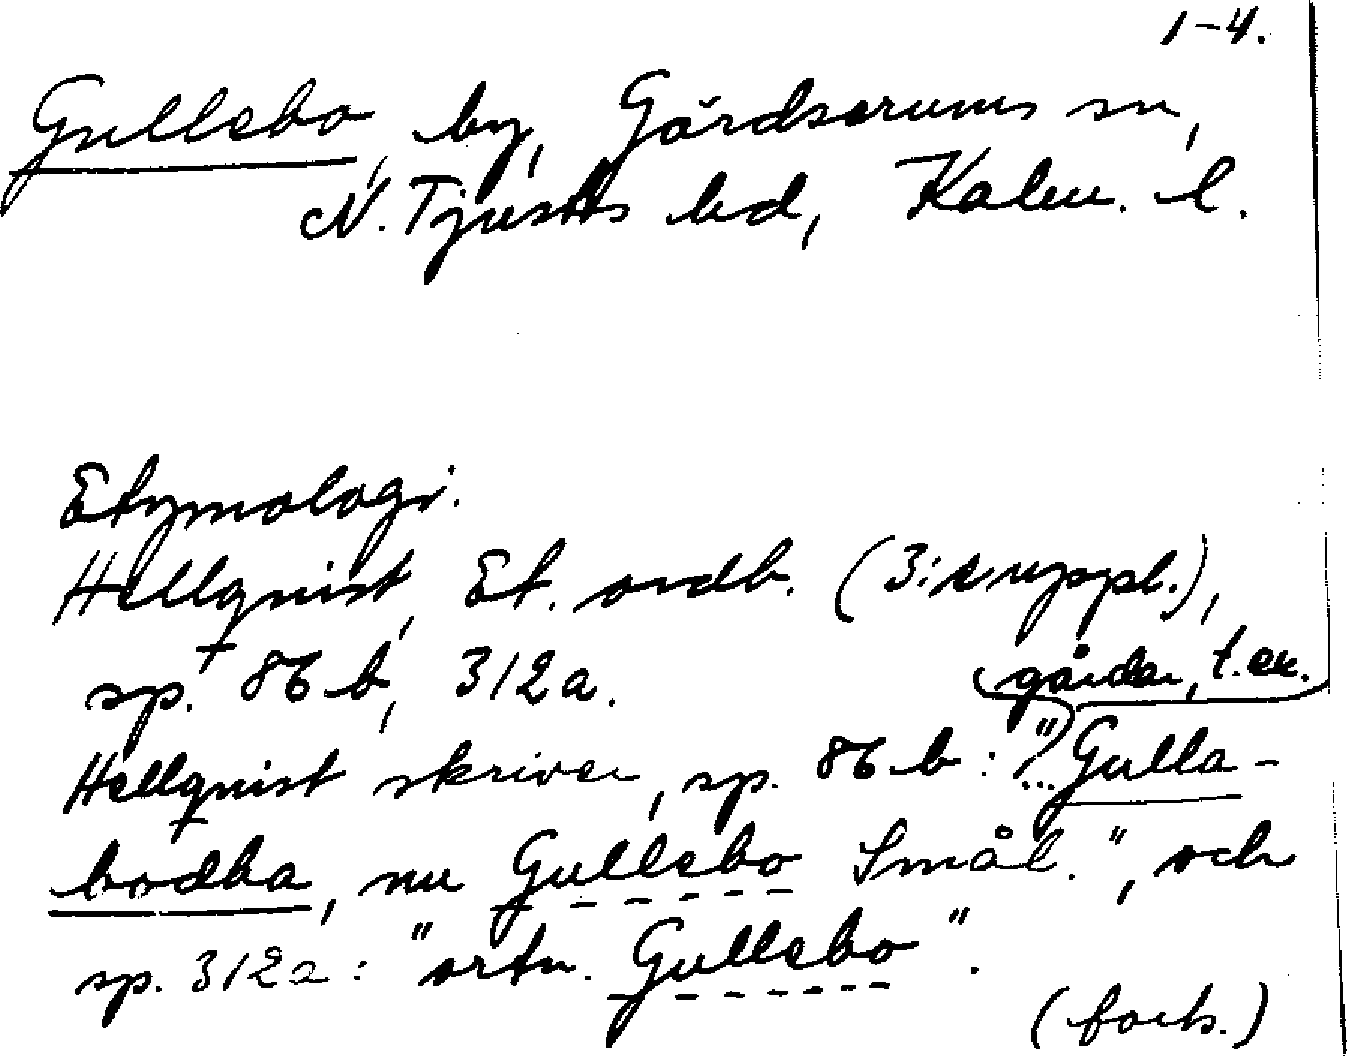 1-4.
Gullebo, by, Gärdserums sn,
N. Tjusts hd, Kalm. l.
Etymologi.
Hellquist, Et. ordb. (3:e uppl.),
sp. 86 b, 312 a.
gårdar, t.ex.
Hellquist skriver, sp. 86 b: "... Gulla-
bodha, nu Gullebo Smål.", och
sp. 312 a: "ortn. Gullebo".
(forts.)